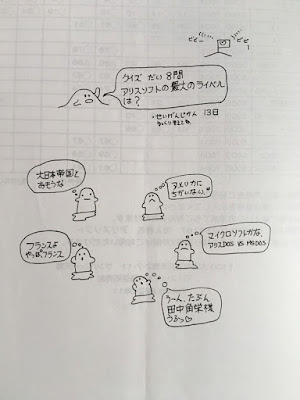 ピピー
ピピー!
クイズ だい8問
アリスソフトの最大のライバル
は?
・せいげんじかん 13日
ゆっくり考えてね
大日本帝国と
おもうな
アメリカに
ちがいない。
フランスよ
やっぱフランス
マイクロソフトかな、
アリスDOS VS MSDOS
う〜ん、たぶん
田中角栄様
うふっ♡